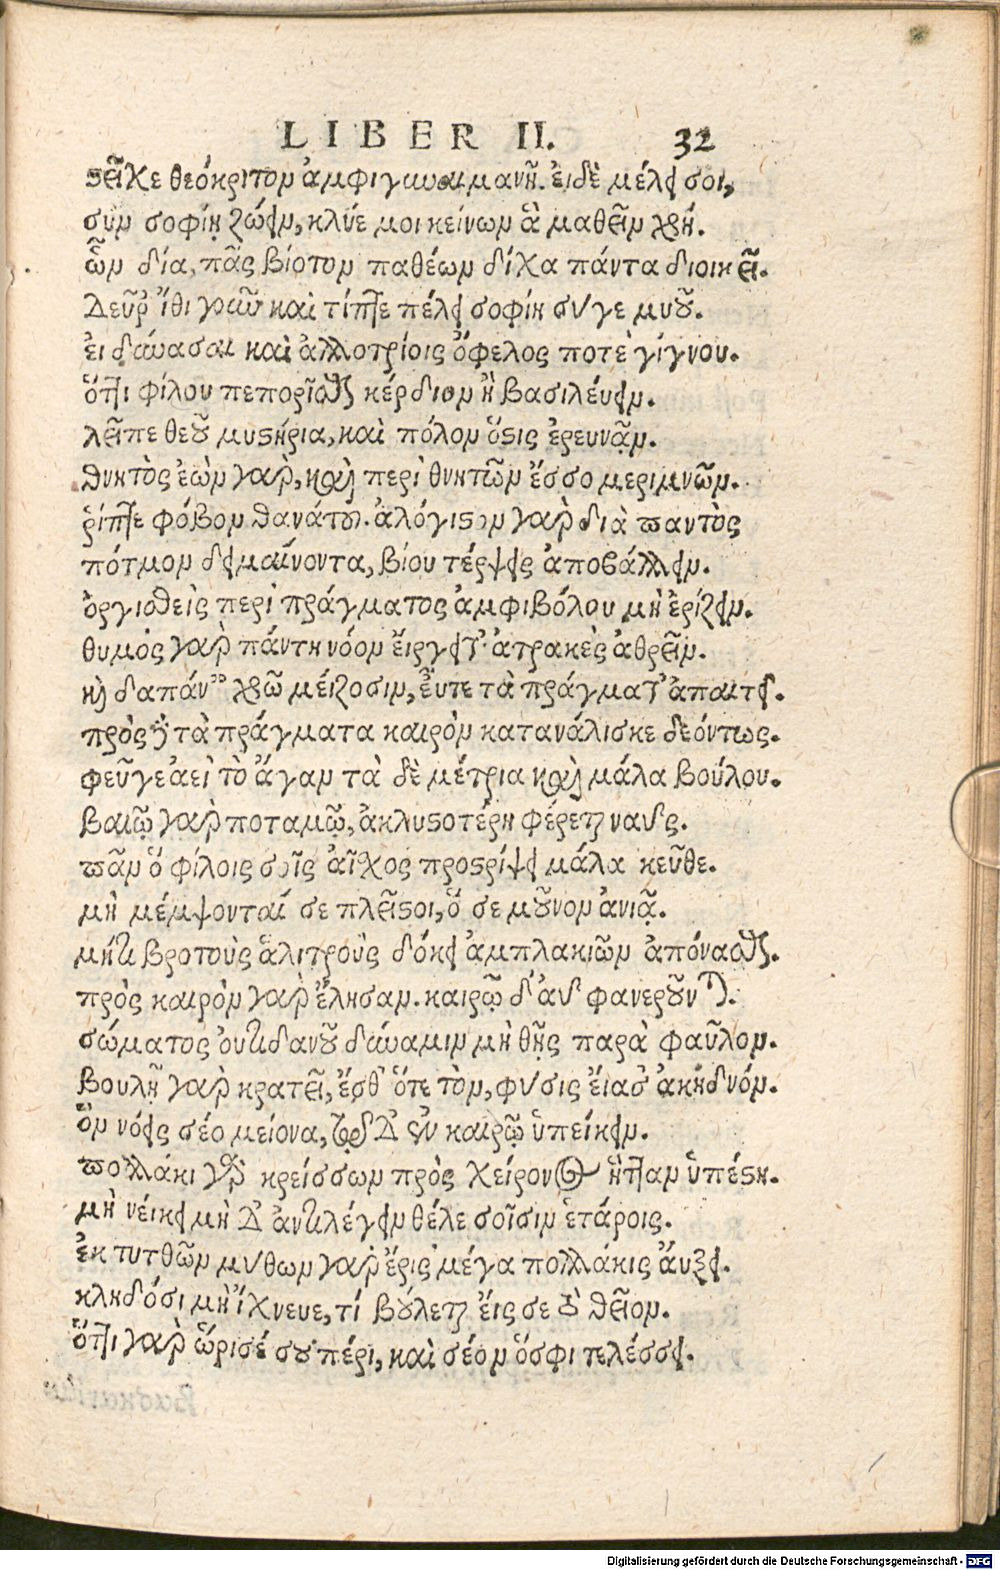 LIBER II. 32
στεῖχε θεόκριτον ἀμφὶ γυναιμανῆ. εἰ δὲ μέλει σοι,
σὺν σοφίῃ ζώειν, κλύε μοι κείνων ἃ μαθεῖν χρή.
ὧν δία, πᾶς βίοτον παθέων δίχα πάντα διοικεῖ.
Δεῦρ ἴθι γοῦν καὶ τίπτε πέλει σοφίη σύ γε μυοῦ.
εἰ δύνασαι καὶ ἀλλοτρίοις ὄφελος ποτὲ γίγνου.
ὅττι φίλου πεπορῖσθαι κέρδιον ἢ βασιλεύειν.
λεῖπε θεοῦ μυστήρια, καὶ πόλον ὅστις ἐρευνᾷν.
θνητὸς ἐὼν γὰρ, καὶ περὶ θνητῶν ἔσσο μεριμνῶν.
ῥίπτε φόβον θανάτου. ἀλόγιστον γὰρ διὰ παντὸς
πότμον δειμαίνοντα, βίου τέρψεις ἀποβάλλειν.
ὀργισθεὶς περὶ πράγματος ἀμφιβόλου μὴ ἐρίζειν.
θυμὸς γὰρ πάντη νόον εἴργει τ' ἀτρακὲς ἀθρεῖν.
καὶ δαπάναις χρῶ μείζοσιν, εὖτε τὰ πράγματ' ἀπαιτεῖ.
πρὸς γὰρ τὰ πράγματα καιρὸν κατανάλισκε δεόντως.
φεῦγε ἀεὶ τὸ ἄγαν τὰ δὲ μέτρια καὶ μάλα βούλου.
βαιῷ γὰρ ποταμῷ, ἀκλυστοτέρη φέρεται ναῦς.
πᾶν ὃ φίλοις σοῖς αἶχος προστρίψει μάλα κεῦθε.
μὴ μέμψονταί σε πλεῖστοι, ὅ σε μοῦνον ἀνιᾷ.
μήτι βροτοὺς ἀλιτροὺς δόκει ἀμπλακιῶν ἀπόνασθαι.
πρὸς καιρὸν γὰρ ἔλησαν. καιρῷ δ' αὖ φανεροῦνται.
σώματος οὐτιδανοῦ δύναμιν μὴ θῇς παρὰ φαῦλον.
βουλῇ γὰρ κρατεῖ, ἔσθ' ὅτε τὸν, φύσις εἴασ' ἀκηδνόν.
ὃν νόεις σέο μείονα, τῷδε δ' ἐν καιρῷ ὑπείκειν.
πολλάκι γὰρ κρείσσων πρὸς χείρονος ἥτταν ὑπέστη.
μὴ νείκει μὴ δ' ἀντιλέγειν θέλε σοῖσιν ἑτάροις.
ἐκ τυτθῶν μύθων γὰρ ἔρις μέγα πολλάκις αὔξει.
κληδόσι μὴ ἴχνευε, τί βούλεται εἰς σε τὸ θεῖον.
ὅττι γὰρ ὥρισέ σου πέρι, καὶ σέο νόσφι τελέσσει.
Digitalisierung gefördert durch die Deutsche Forschungsgemeinschaft - DFG